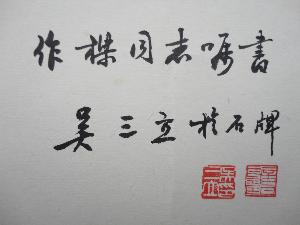 作櫟同志嘱書
吴三立於石牌